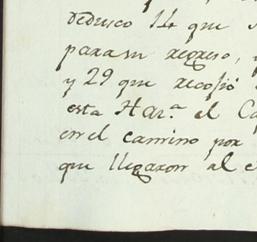 deduseo lle que
para su regreso,
y 29 que recosió
esta Har.ª el Ca
en el camino por
que llegaron al e